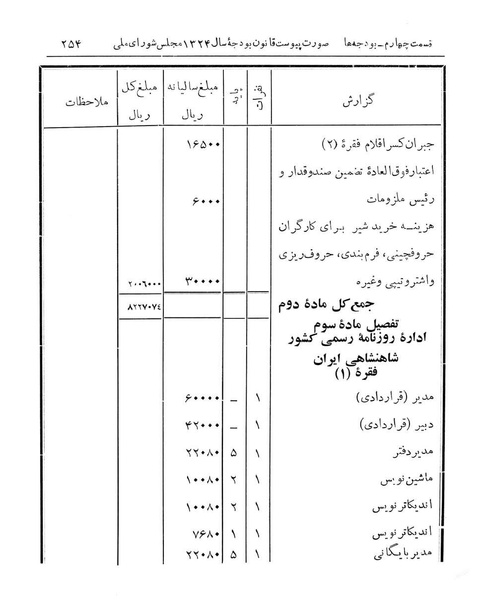 قسمت چهارم ـ بودجه‌ها صورت پیوست قانون بودجهٔ سال ۱۳۲۴ مجلس شورای ملی ۲۵۴
گزارش نفرات پایه مبلغ سالیانه ریال مبلغ کل ریال ملاحظات
جبران کسر اقلام فقرهٔ (۲) ۱۶۵۰۰
اعتبار فوق‌العادهٔ تضمین صندوقدار و
رئیس ملزومات ۶۰۰۰
هزینه خرید شیر برای کارگران
حروفچینی، فرم‌بندی، حروف‌ریزی
واشتروتیپی وغیره ۳۰۰۰۰ ۲۰۰۶۰۰۰
جمع کل مادهٔ دوم ۸۲۲۷۰۷۴
تفصیل مادهٔ سوم
ادارهٔ روزنامهٔ رسمی کشور
شاهنشاهی ایران
فقرهٔ (۱)
مدیر (قراردادی) ۱ ـ ۶۰۰۰۰
دبیر (قراردادی) ۱ ـ ۴۲۰۰۰
مدیر دفتر ۱ ۵ ۲۲۰۸۰
ماشین نویس ۱ ۲ ۱۰۰۸۰
اندیکاتر نویس ۱ ۲ ۱۰۰۸۰
اندیکاتر نویس ۱ ۱ ۷۶۸۰
مدیر بایگانی ۱ ۵ ۲۲۰۸۰